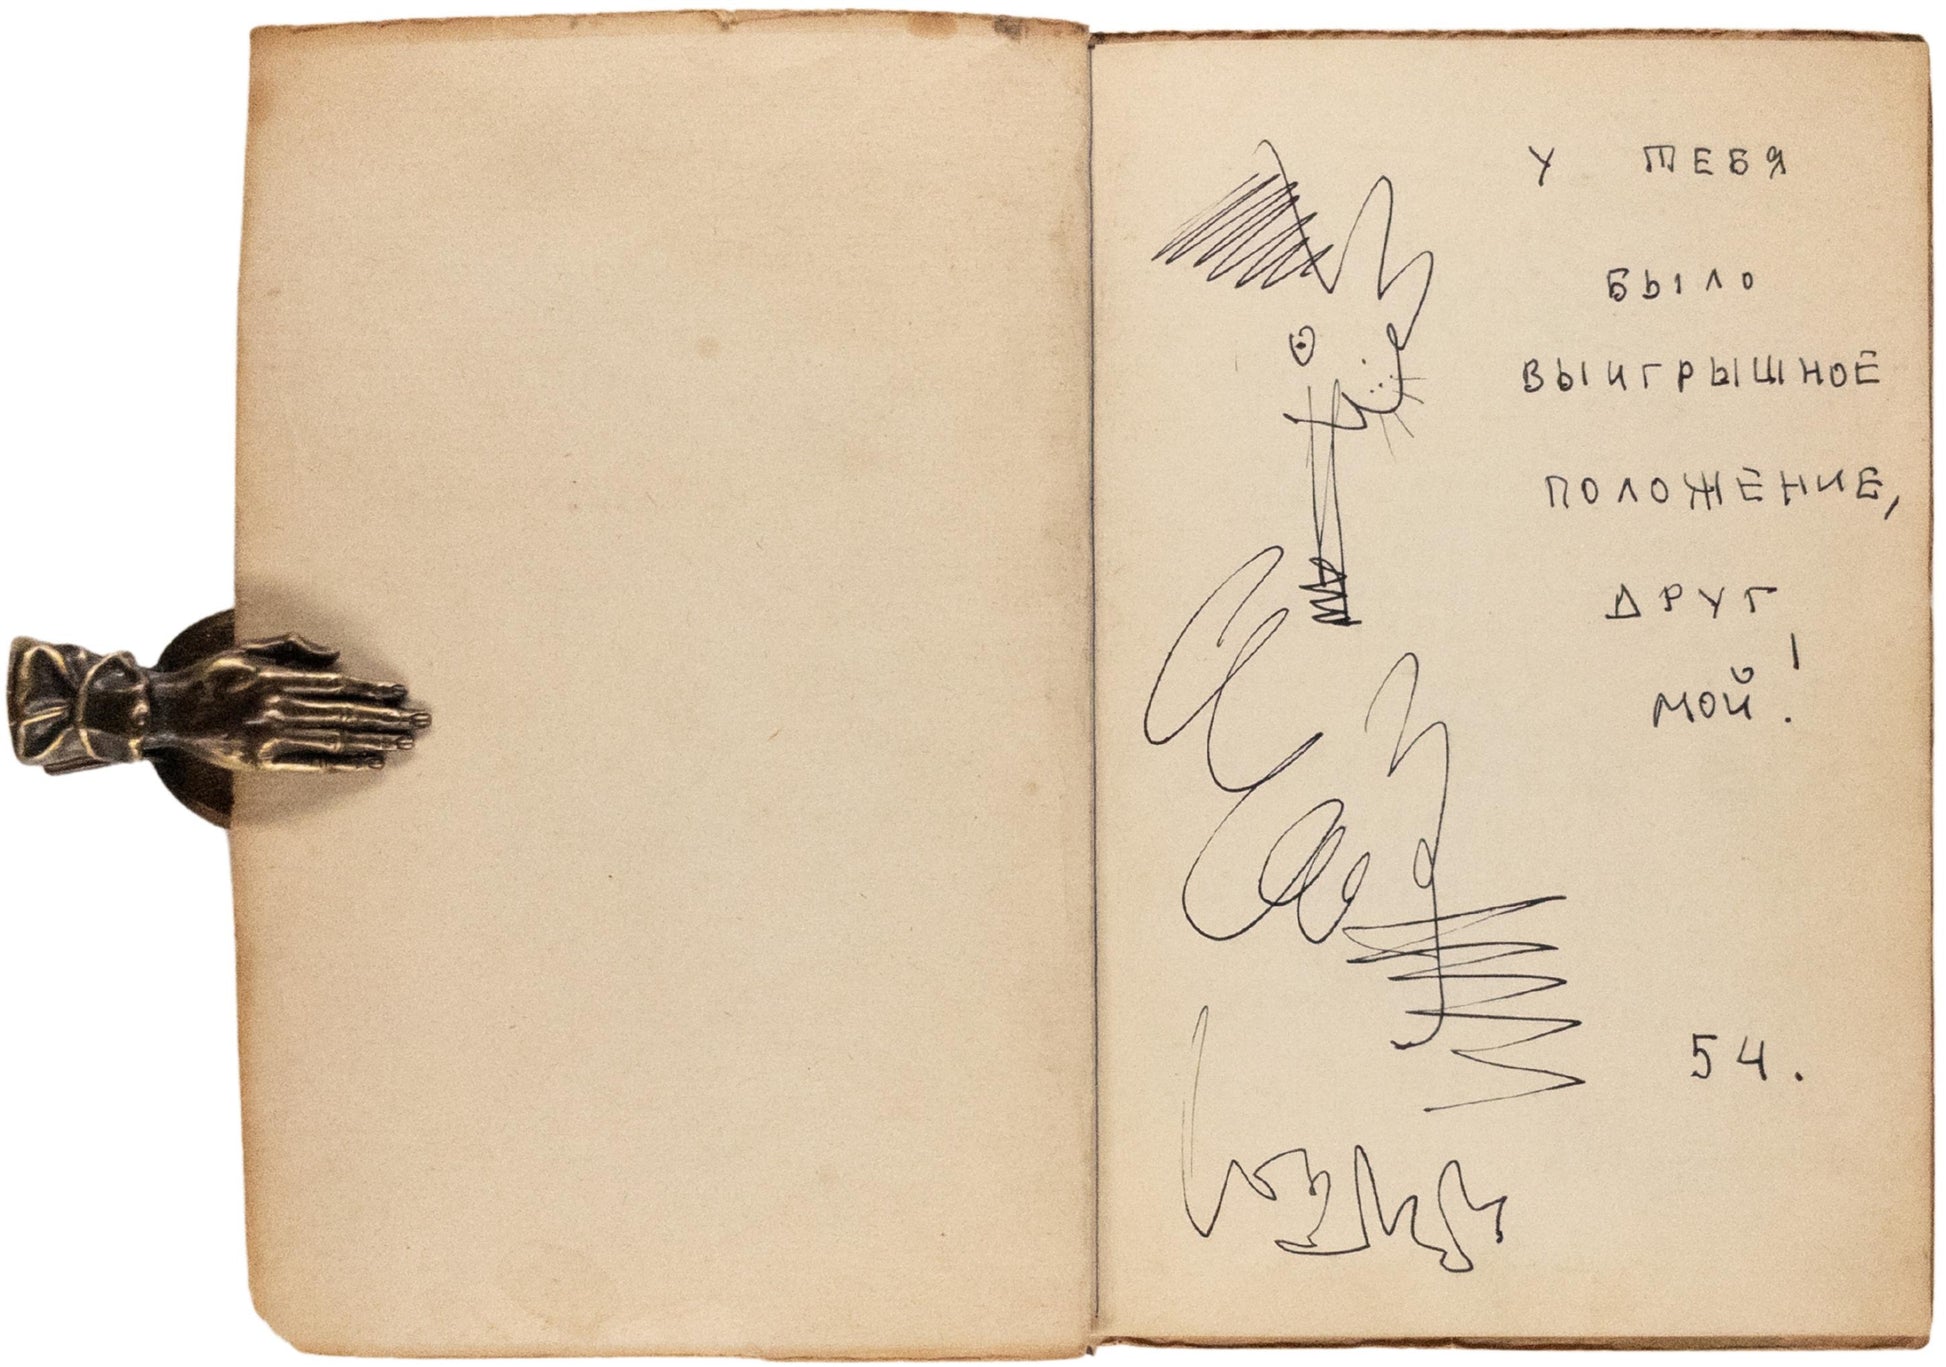 У ТЕБЯ
БЫЛО
ВЫИГРЫШНОЕ
ПОЛОЖЕНИЕ,
ДРУГ
МОЙ!
54.